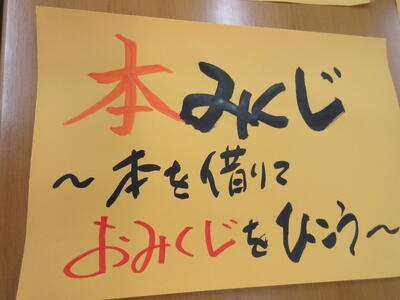 本みくじ
～本を借りて
おみくじをひこう～